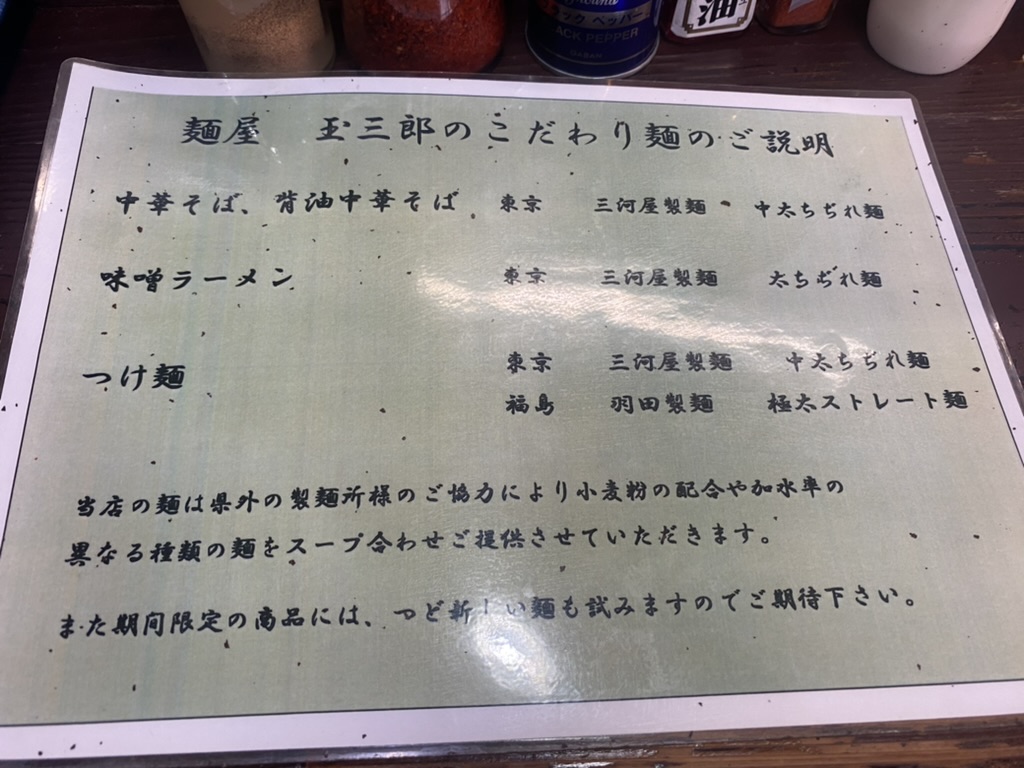 Ground
ック ペッパー
ACK PEPPER
GABAN
油
麺屋 玉三郎のこだわり麺のご説明
中華そば、背油中華そば 東京 三河屋製麺 中太ちぢれ麺
味噌ラーメン 東京 三河屋製麺 太ちぢれ麺
つけ麺 東京 三河屋製麺 中太ちぢれ麺
福島 羽田製麺 極太ストレート麺
当店の麺は県外の製麺所様のご協力により小麦粉の配合や加水率の
異なる種類の麺をスープ合わせご提供させていただきます。
また期间限定の商品には、つど新しい麺も試みますのでご期待下さい。